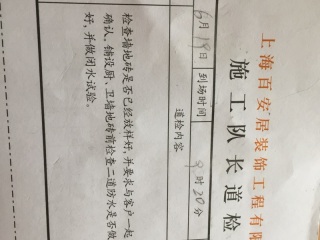 上海百安居装饰工程有限
施工队长道检
6月19日 到场时间 9时20分
道检内容
检查墙地砖是否已经放样好,并要求与客户一起
确认,铺设厨、卫墙地砖前检查二道防水是否做
好,并做闭水试验。